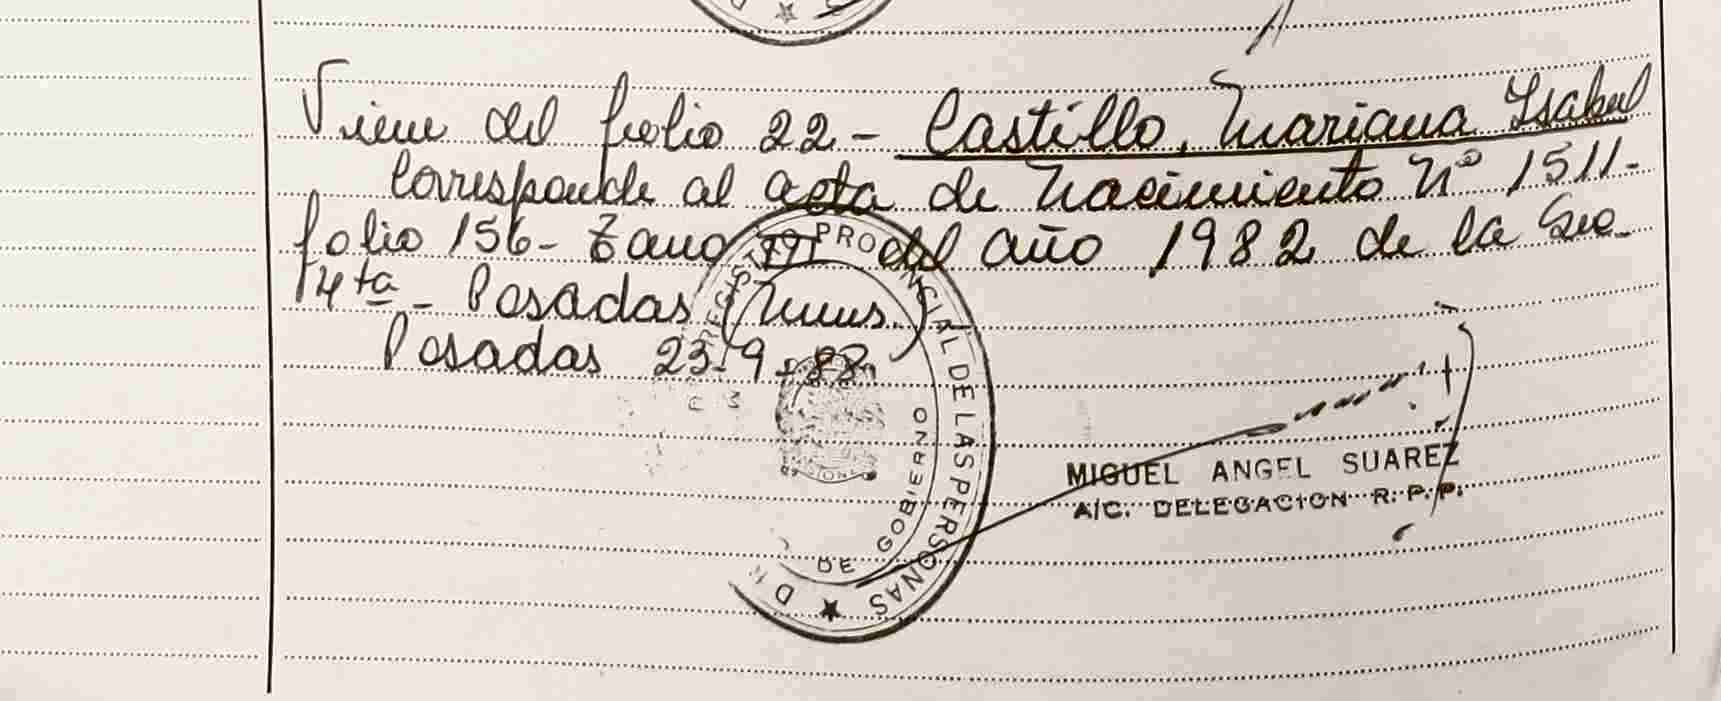 Viene del folio 22 - Castillo, Mariana Ysabel
Corresponde al acta de Nacimiento Nº 1511-
folio 156 - Tomo III del año 1982 de la Sec.
4ta - Posadas (Mnes.)
Posadas 23-9-88
REGISTRO PROVINCIAL DE LAS PERSONAS
DE GOBIERNO
MIGUEL ANGEL SUAREZ
A/C. DELEGACION R. P. P.